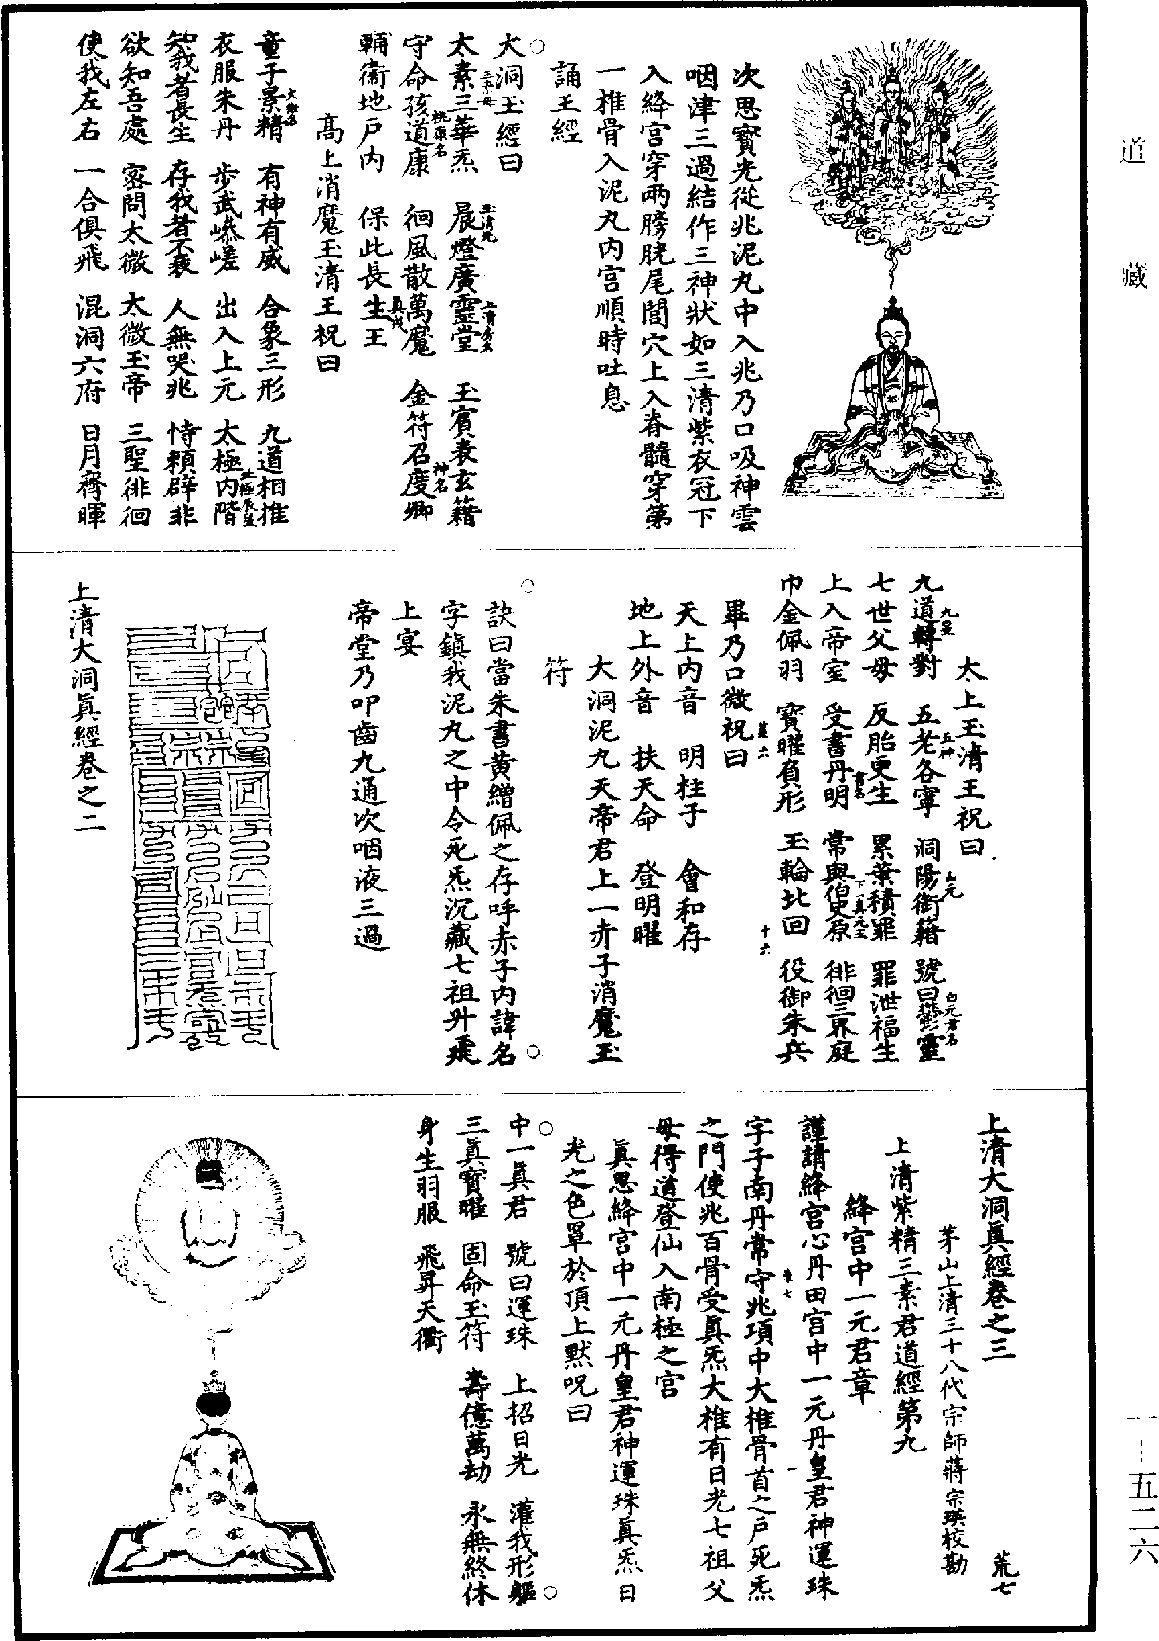 道藏
一—五二六
次思寶光從兆泥丸中入兆乃口吸神雲
咽津三過結作三神狀如三清紫衣冠下
入絳宮穿兩膀胱尾閭穴上入脊髓穿第
一推骨入泥丸內宮順時吐息
誦玉經
大洞玉經曰
太素三華炁 晨燈廣靈堂 玉賓表玄籍
守命孩道康 徊風散萬魔 金符召度卿
輔衞地戶內 保此長生王
高上消魔玉清王祝曰
童子景精 有神有威 合象三形 九道相推
衣服朱丹 步武嵾嵯 出入上元 太極內階
知我者長生 存我者不衰 人無哭兆 恃賴辟非
欲知吾處 密問太微 太微玉帝 三聖徘徊
使我左右 一合俱飛 混洞六府 日月齊暉
太上玉清王祝曰
九道轉對 五老各寧 洞陽銜籍 號曰鬱靈
七世父母 反胎更生 累葉積罪 罪泄福生
上入帝室 受書丹明 常與伯史原 徘徊三界庭
巾金佩羽 寶曜負形 玉輪北回 役御朱兵
畢乃口微祝曰
天上內音 明柱子 會和存
地上外音 扶天命 登明曜
大洞泥丸天帝君上一赤子消魔玉
符
訣曰當朱書黃繒佩之存呼赤子內諱名
字鎮我泥丸之中令死炁沉藏七祖升飛
上宴
帝堂乃叩齒九通次咽液三過
上清大洞眞經卷之二
上清大洞眞經卷之三 荒七
茅山上清三十八代宗師蔣宗瑛校勘
上清紫精三素君道經第九
絳宮中一元君章
謹請絳宮心丹田宮中一元丹皇君神運珠
字子南丹常守兆項中大椎骨首之戶死炁
之門使兆百骨受眞炁大椎有日光七祖父
母得道登仙入南極之宮
眞思絳宮中一元丹皇君神運珠眞炁日
光之色罩於頂上默呪曰
中一眞君 號曰運珠 上招日光 灌我形軀
三眞寶曜 固命玉符 壽億萬劫 永無終休
身生羽服 飛昇天衢